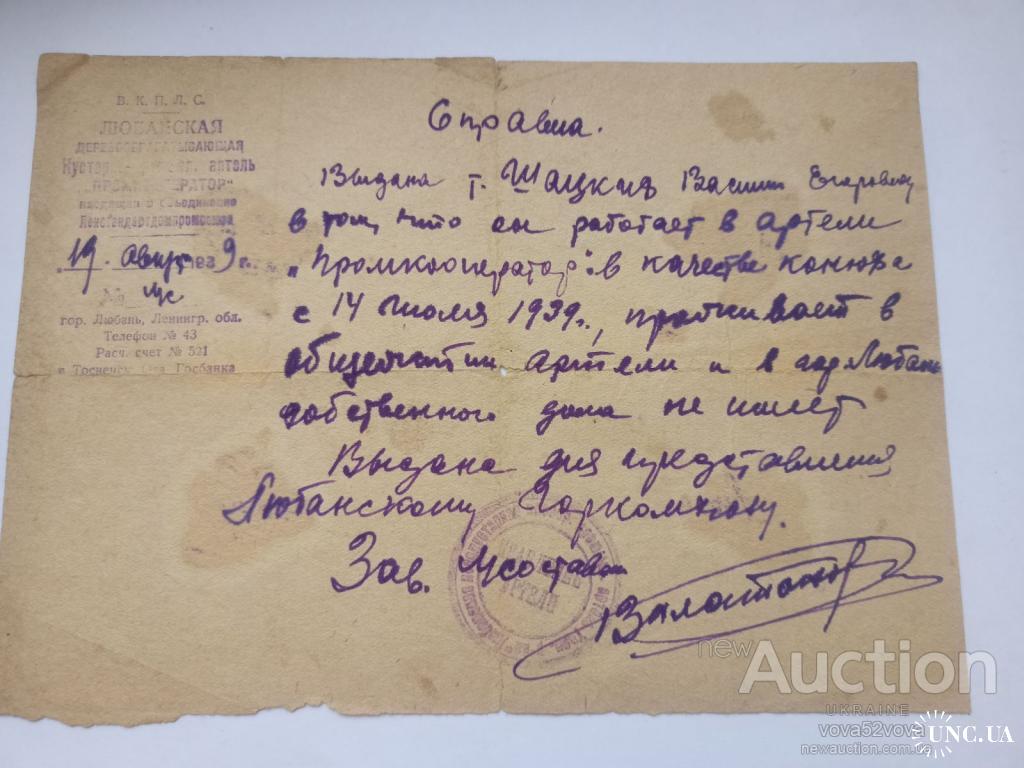 В. К. П. Л. С.
ЛЮБАНСКАЯ
ДЕРЕВООБРАБАТЫВАЮЩАЯ
артель
находящаяся в объединении
19. август 193 9 г.
№
гор. Любань, Ленингр. обл.
Телефон № 43
Расч. счет № 521
в Тосненск Отд Госбанка
Справка.
Выдана т. Шацкий Василий Егорович
в том, что он работает в артели
„Промкооператор" в качестве конюха
с 14 июля 1939г., проживает в
общежитии артели и в гор. Любань
собственного дома не имеет
Выдана для представления
Любанскому Горкомхозу.
Зав.
ПРАВЛЕНИЕ
АРТЕЛИ
new Auction
UKRAINE
vova52vova
newauction.com.ua
UNC.UA